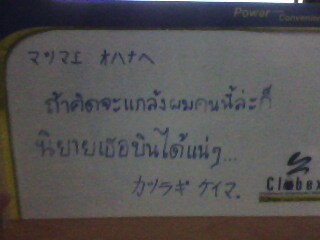 Power
マツマエ オハナヘ
ถ้าคิดจะแกล้งผมคนนี้ล่ะก็
นิยายเธอบินได้แน่ๆ...
カツラギ ケイマ.